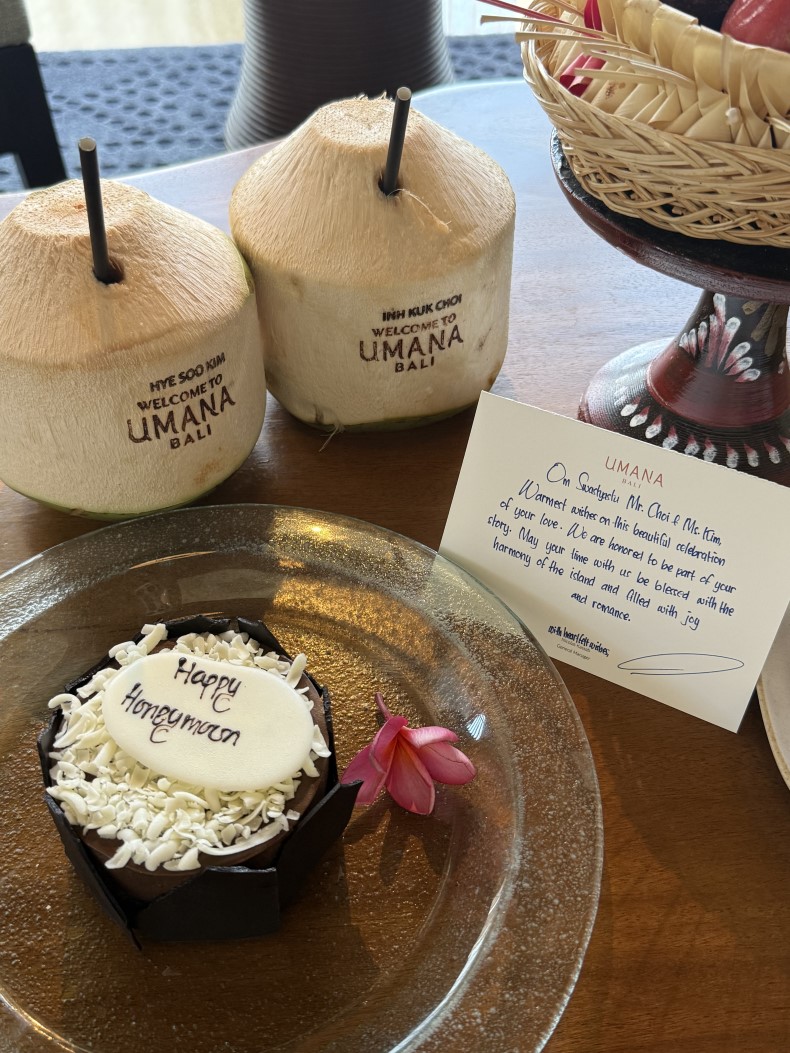 HYE SOO KIM
WELCOME TO
UMANA
BALI
INH KUK CHOI
WELCOME TO
UMANA
BALI
UMANA
BALI
Om Swastyastu Mr. Choi & Ms. Kim,
Warmest wishes on this beautiful celebration
of your love. We are honored to be part of your
story. May your time with us be blessed with the
harmony of the island and filled with joy
and romance.
with heartfelt wishes,
General Manager
Happy
Honeymoon